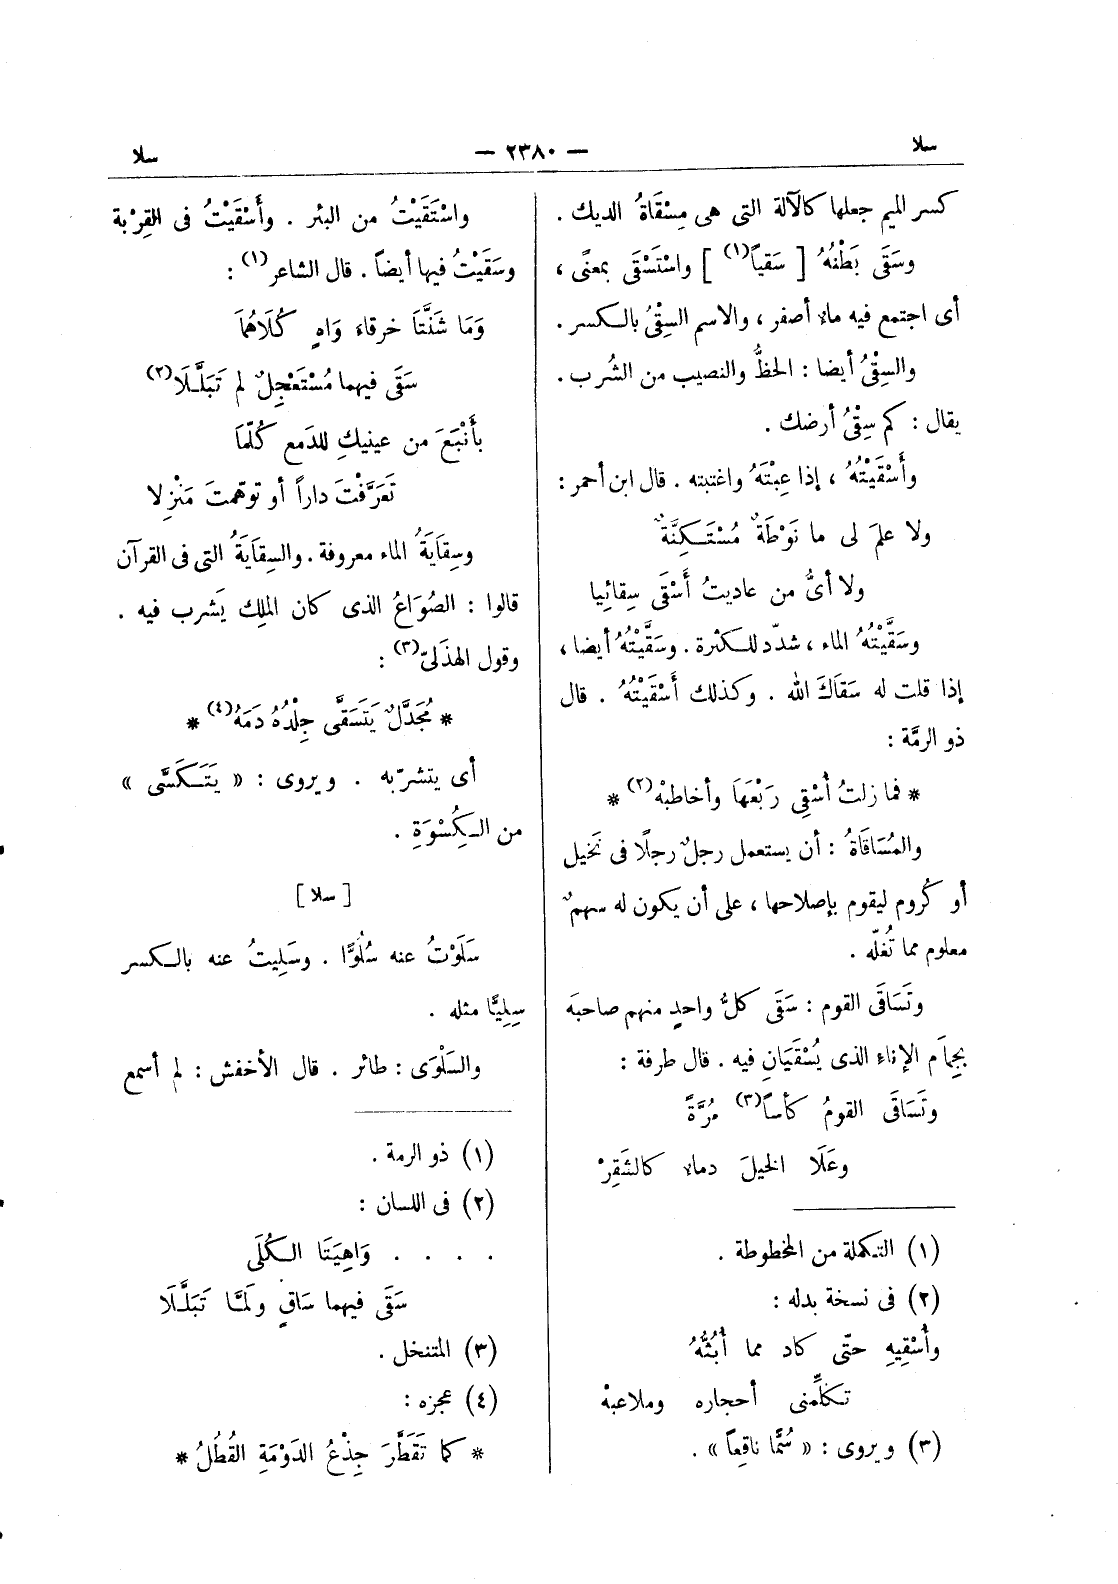 سلا — ٢٣٨٠ — سلا
كسر الميم جعلها كالآلة التى هى مِسْقَاةُ الديك .
وسَقَى بَطْنُهُ [ سَقياً(١) ] واسْتَسْقَى بمعنًى ،
أى اجتمع فيه ماء أصفر ، والاسم السِقْىُ بالكسر .
والسِقْىُ أيضا : الحظُّ والنصيب من الشُرب .
يقال : كم سِقْىُ أرضك .
وأَسْقَيْتُهُ ، إذا عِبْتَهُ واغتبته . قال ابن أحمر :
ولا علمَ لى ما نَوْطَةٌ مُسْتَكِنَّةٌ
ولا أىُّ من عاديتُ أَسْقَى سِقائيا
وسَقَّيْتُهُ الماء ، شدّد للكثرة . وسَقَّيْتُهُ أيضا ،
إذا قلت له سَقَاكَ الله . وكذلك أَسْقَيْتُهُ . قال
ذو الرمَّة :
* فما زلتُ أُسْقِى رَبْعَهَا وأخاطبهْ(٢) *
والمُسَاقَاةُ : أن يستعمل رجلٌ رجلًا فى نَخيل
أو كُروم ليقوم بإصلاحها ، على أن يكون له سهمٌ
معلوم مما تُغلّه .
وتَسَاقَى القوم : سَقَى كلُّ واحدٍ منهم صاحبَه
بِجِمَام الإناء الذى يُسْقَيَانِ فيه . قال طرفة :
وتَسَاقَى القومُ كأساً(٣) مُرَّةً
وعَلَا الخيلَ دماء كالشَقِرْ
(١) التكملة من المخطوطة .
(٢) فى نسخة بدله :
وأُسْقِيهِ حتّى كاد مما أَبُثُّهُ
تكلِّمنى أحجاره وملاعبهْ
(٣) ويروى : « سُمًّا ناقِعاً » .
واسْتَقَيْتُ من البئر . وأَسْقَيْتُ فى القِرْبة
وسَقَيْتُ فيها أيضاً . قال الشاعر(١) :
وَمَا شَنَّتَا خرقاءَ وَاهٍ كُلَاهُمَا
سَقَى فيهما مُسْتَعْجِلٌ لم تَبَلَّلَا(٢)
بأَنْبَعَ من عينيكِ للدَمع كُلّمَا
تَعَرَّفْتَ داراً أو توهّمتَ مَنْزِلا
وسِقايَةُ الماء معروفة . والسِقايَةُ التى فى القرآن
قالوا : الصُوَاعُ الذى كان الملِك يَشرب فيه .
وقول الهذَلىّ(٣) :
* مُجَدَّلٌ يَتَسَقَّى جِلْدُهُ دَمَهُ(٤) *
أى يتشرّبه . ويروى : « يَتَكَسَّى »
من الكِسْوَةِ .
[ سلا ]
سَلَوْتُ عنه سُلُوًّا . وسَلِيتُ عنه بالكسر
سِلِيًّا مثله .
والسَلْوَى : طائر . قال الأخفش : لم أسمع
(١) ذو الرمة .
(٢) فى اللسان :
. . . . وَاهِيَتَا الكُلَى
سَقَى فيهما سَاقٍ ولَمَّا تَبَلَّلَا
(٣) المتنخل .
(٤) عجزه :
* كما تَقَطَّرَ جِذْعُ الدَوْمَةِ القُطُلُ *